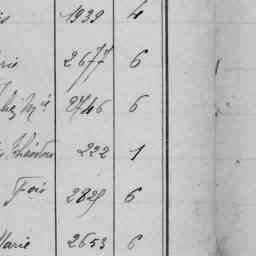 1939 4
rie 2677 6
2746 6
Théodore 222 1
Fois 2829 6
Marie 2653 6